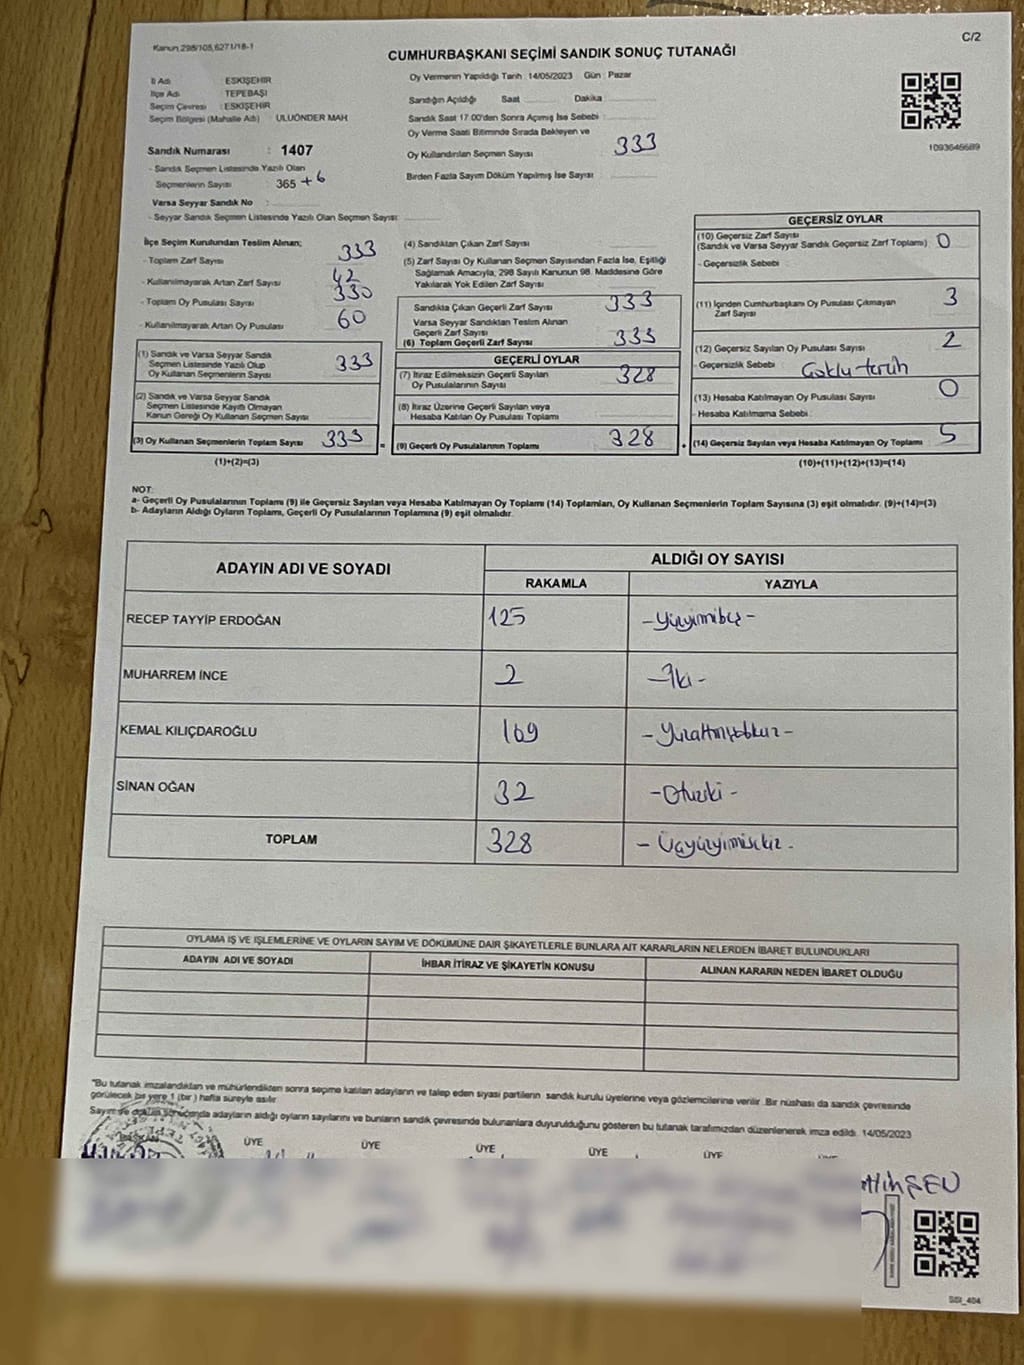 Kanun 298/105,6271/18-1
C/2
CUMHURBAŞKANI SEÇİMİ SANDIK SONUÇ TUTANAĞI
İl Adı : ESKİŞEHİR
İlçe Adı : TEPEBAŞI
Seçim Çevresi : ESKİŞEHİR
Seçim Bölgesi (Mahalle Adı) : ULUÖNDER MAH
Sandık Numarası : 1407
- Sandık Seçmen Listesinde Yazılı Olan
Seçmenlerin Sayısı : 365 +6
Varsa Seyyar Sandık No :
- Seyyar Sandık Seçmen Listesinde Yazılı Olan Seçmen Sayısı:
Oy Vermenin Yapıldığı Tarih : 14/05/2023 Gün : Pazar
Sandığın Açıldığı Saat Dakika
Sandık Saat 17:00'den Sonra Açımış İse Sebebi :
Oy Verme Saati Bitiminde Sırada Bekleyen ve
Oy Kullandırılan Seçmen Sayısı 333
Birden Fazla Sayım Döküm Yapılmış İse Sayısı
1093646689
İlçe Seçim Kurulundan Teslim Alınan;
- Toplam Zarf Sayısı 333
- Kullanılmayarak Artan Zarf Sayısı 42
- Toplam Oy Pusulası Sayısı 330
- Kullanılmayarak Artan Oy Pusulası 60
(1) Sandık ve Varsa Seyyar Sandık
Seçmen Listesinde Yazılı Olup
Oy Kullanan Seçmenlerin Sayısı 333
(2) Sandık ve Varsa Seyyar Sandık
Seçmen Listesinde Kayıtlı Olmayan
Kanun Gereği Oy Kullanan Seçmen Sayısı
(3) Oy Kullanan Seçmenlerin Toplam Sayısı 333 =
(1)+(2)=(3)
(4) Sandıktan Çıkan Zarf Sayısı
(5) Zarf Sayısı Oy Kullanan Seçmen Sayısından Fazla İse, Eşitliği
Sağlamak Amacıyla, 298 Sayılı Kanunun 98. Maddesine Göre
Yakılarak Yok Edilen Zarf Sayısı
Sandıkta Çıkan Geçerli Zarf Sayısı 333
Varsa Seyyar Sandıktan Teslim Alınan
Geçerli Zarf Sayısı
(6) Toplam Geçerli Zarf Sayısı 333
GEÇERLİ OYLAR
(7) İtiraz Edilmeksizin Geçerli Sayılan
Oy Pusulalarının Sayısı 328
(8) İtiraz Üzerine Geçerli Sayılan veya
Hesaba Katılan Oy Pusulası Toplamı
(9) Geçerli Oy Pusulalarının Toplamı 328
GEÇERSİZ OYLAR
(10) Geçersiz Zarf Sayısı
(Sandık ve Varsa Seyyar Sandık Geçersiz Zarf Toplamı) 0
- Geçersizlik Sebebi
(11) İçinden Cumhurbaşkanı Oy Pusulası Çıkmayan
Zarf Sayısı 3
(12) Geçersiz Sayılan Oy Pusulası Sayısı 2
- Geçersizlik Sebebi Çoklu tercih
(13) Hesaba Katılmayan Oy Pusulası Sayısı 0
- Hesaba Katılmama Sebebi
(14) Geçersiz Sayılan veya Hesaba Katılmayan Oy Toplamı 5
(10)+(11)+(12)+(13)=(14)
NOT:
a- Geçerli Oy Pusulalarının Toplamı (9) ile Geçersiz Sayılan veya Hesaba Katılmayan Oy Toplamı (14) Toplamları, Oy Kullanan Seçmenlerin Toplam Sayısına (3) eşit olmalıdır. (9)+(14)=(3)
b- Adayların Aldığı Oyların Toplamı, Geçerli Oy Pusulalarının Toplamına (9) eşit olmalıdır.
ADAYIN ADI VE SOYADI ALDIĞI OY SAYISI
RAKAMLA YAZIYLA
RECEP TAYYİP ERDOĞAN 125 -Yüzyirmibeş-
MUHARREM İNCE 2 -İki-
KEMAL KILIÇDAROĞLU 169 -Yüzaltmışdokuz-
SİNAN OĞAN 32 -Otuziki-
TOPLAM 328 - Üçyüzyirmisekiz-
OYLAMA İŞ VE İŞLEMLERİNE VE OYLARIN SAYIM VE DÖKÜMÜNE DAİR ŞİKAYETLERLE BUNLARA AİT KARARLARIN NELERDEN İBARET BULUNDUKLARI
ADAYIN ADI VE SOYADI İHBAR İTİRAZ VE ŞİKAYETİN KONUSU ALINAN KARARIN NEDEN İBARET OLDUĞU
"Bu tutanak imzalandıktan ve mühürlendikten sonra seçime katılan adayların ve talep eden siyasi partilerin sandık kurulu üyelerine veya gözlemcilerine verilir .Bir nüshası da sandık çevresinde
görülecek bir yere 1 (bir ) hafta süreyle asılır.
Sayım ve döküm sonucunda adayların aldığı oyların sayılarını ve bunların sandık çevresinde bulunanlara duyurulduğunu gösteren bu tutanak tarafımızdan düzenlenerek imza edildi. 14/05/2023
BAŞKAN ÜYE ÜYE ÜYE ÜYE ÜYE
ŞEN
SSI_404